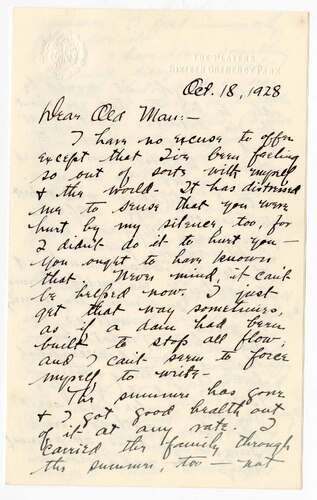 THE PLAYERS
SIXTEEN GRAMERCY PARK
Oct. 18, 1928
Dear Old Man:-
I have no excuse to offer
except that I've been feeling
so out of sorts with myself
& the world. It has distressed
me to sense that you were
hurt by my silence, too, for
I didn't do it to hurt you —
you ought to have known
that. Never mind, it can't
be helped now. I just
get that way sometimes,
as if a dam had been
built to stop all flow,
and I can't seem to force
myself to write —
The summer has gone
& I got good health out
of it at any rate. I
carried the family through
the summer, too — not